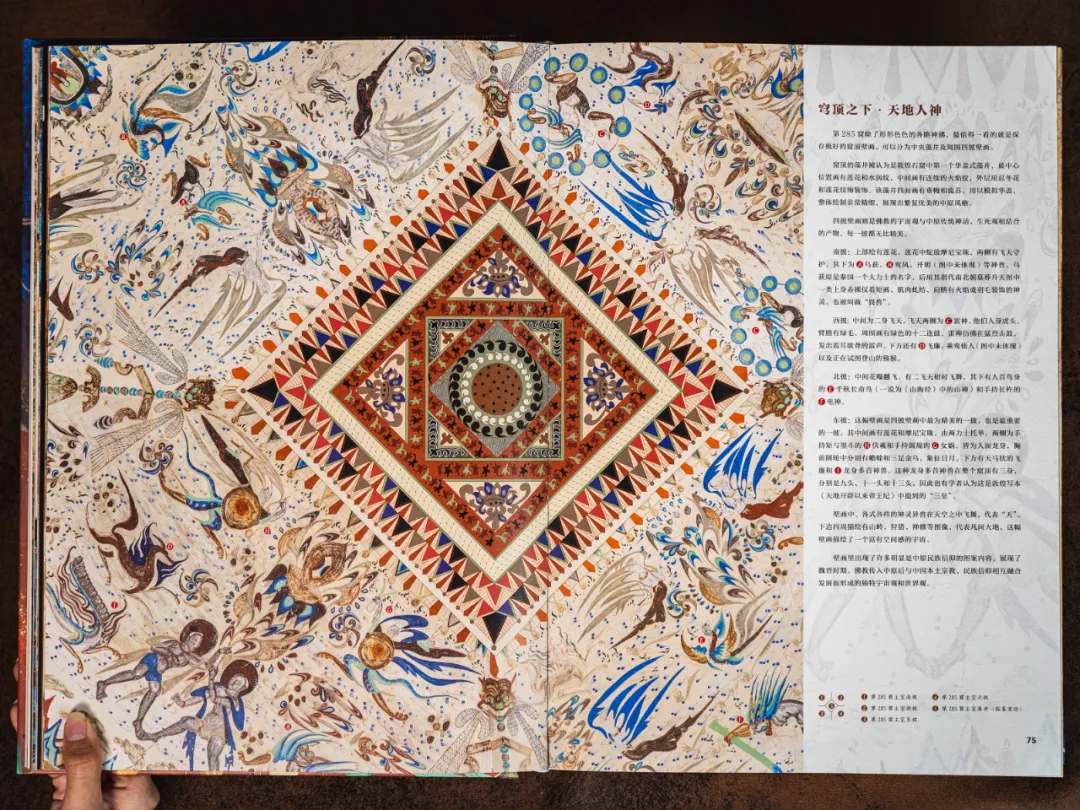 穹顶之下·天地人神
第285窟除了形形色色的各路神佛，最值得一看的就是保
存极好的窟顶壁画，可以分为中央藻井及周围四披壁画。
窟顶的藻井被认为是敦煌石窟中第一个华盖式藻井，最中心
位置画有莲花和水涡纹，中间画有连续的火焰纹，外层用忍冬花
和莲花纹饰装饰。该藻井四面画有垂幔和流苏，用以模拟华盖，
整体绘制非常精细，展现出繁复优美的中原风格。
四披壁画则是佛教的宇宙观与中原传统神话、生死观相结合
的产物，每一披都无比精美。
南披：上部绘有莲花，莲花中绽放摩尼宝珠，两侧有飞天守
护，其下为A乌获、
开明（图中未体现）等神兽。乌
获原是秦国一个大力士的名字，后用其指代南北朝墓葬升天图中
一类上身赤裸仅着短裤，肌肉虬结，肩膀有火焰或羽毛装饰的神
灵，也被叫做
西披：中间为二身飞天，飞天两侧为C雷神，他们人身虎头，
臂膀有绿毛，周围画有绿色的十二连鼓，雷神仿佛在猛烈击鼓，
发出震耳欲聋的雷声。下方还有D飞廉、乘鸾仙人（图中未体现）
以及正在试图登山的猕猴。
北披：中间花瓣翻飞，有二飞天相对飞舞。其下有人首鸟身
的E千秋长命鸟（一说为《山海经》中的山神）和手持长杵的
F电神。
东披：这幅壁画是四披壁画中最为精美的一披，也是最重要
的一披。其中间画有莲花和摩尼宝珠，由两力士托举。两侧为手
持矩与墨斗的H伏羲和手持圆规的G女娲，皆为人面龙身，胸
前圆轮中分别有蟾蜍和三足金乌，象征日月。下方有天马状的飞
廉和I龙身多首神兽。这种龙身多首神兽在整个窟顶有三身，
分别是九头、十一头和十三头，因此也有学者认为这是敦煌写本
《天地开辟以来帝王纪》中提到的“三皇”。
壁画中，各式各样的神灵异兽在天空之中飞舞，代表“天”。
下边四周描绘有山岭、狩猎、禅修等图像，代表凡间大地。这幅
壁画描绘了一个富有空间感的宇宙。
壁画里出现了许多明显是中原民族信仰的图案内容，展现了
魏晋时期，佛教传入中原后与中国本土宗教、民族信仰相互融合
发展而形成的独特宇宙观和世界观。
1 2
5
3 4
1 第285窟主室南披
2 第285窟主室西披
3 第285窟主室东披
4 第285窟主室北披
5 第285窟主室藻井
75